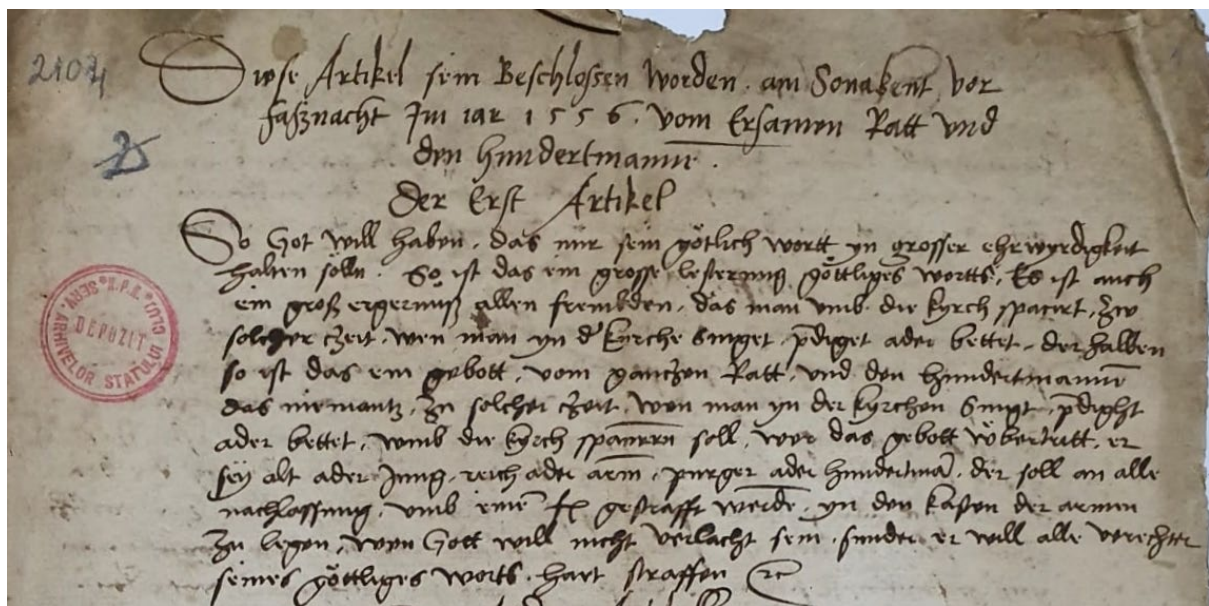 2104
Diese Artikel sein Beschlossen worden. am Sonabent vor
faßnacht Im iar 1556. vom Ersamen Ratt vnd
den hundertmann.
Der Erst Artikel
So Got will haben, das mir sein götlich wortt yn grosser ehrwyrdigkeit
halten solln. So ist das ein grosse lesterung göttliges wortts, Es ist auch
ein groß ergernuß allen frembden, das man vmb die kyrch spacirt, zw
solcher czeit, wen man yn d' kyrche singet, p̄diget ader bettet, derhalben
so ist das ein gebott, vom ganczen Ratt, vnd den hundertmannē
das niemantz, zu solcher czeit, wen man yn der kyrchen singt, p̄dight
ader bettet, vmb die kyrch spacirn soll, wer das gebott wbertritt, er
sey alt ader Jung, reich ader arm, purger ader hundertmā, der soll an alle
nachlassung, vmb einē fl gestrafft werdē, yn den kasten der armen
zu legen, wen Gott will nicht verlacht sein, sunder er will alle verechter
seines göttliges worts, hart straffen ꝛc
SERV. ARHIVELOR STATULUI CLUJ * R.P.R. *
DEPOZIT